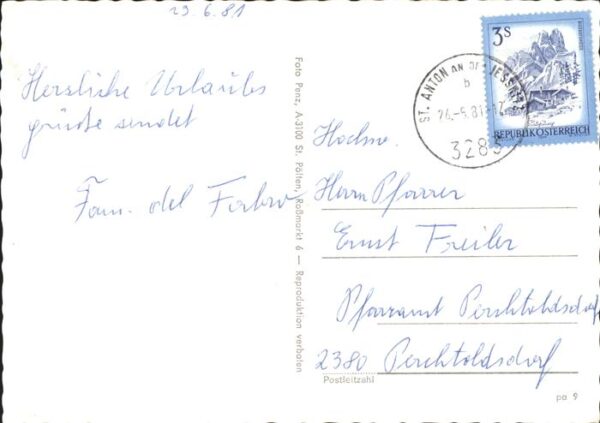 23.6.81
Herzliche Urlaubs
grüße sendet
Fam. del Fabro
Foto Penz, A-3100 St. Pölten, Roßmarkt 6 — Reproduktion verboten
3 S
REPUBLIK ÖSTERREICH
ST. ANTON AN DER JESSNITZ
b
24.-5.81-17
3283
Hochw.
Herrn Pfarrer
Ernst Freiler
Pfarramt Perchtoldsdorf
2380 Perchtoldsdorf
Postleitzahl
pa 9